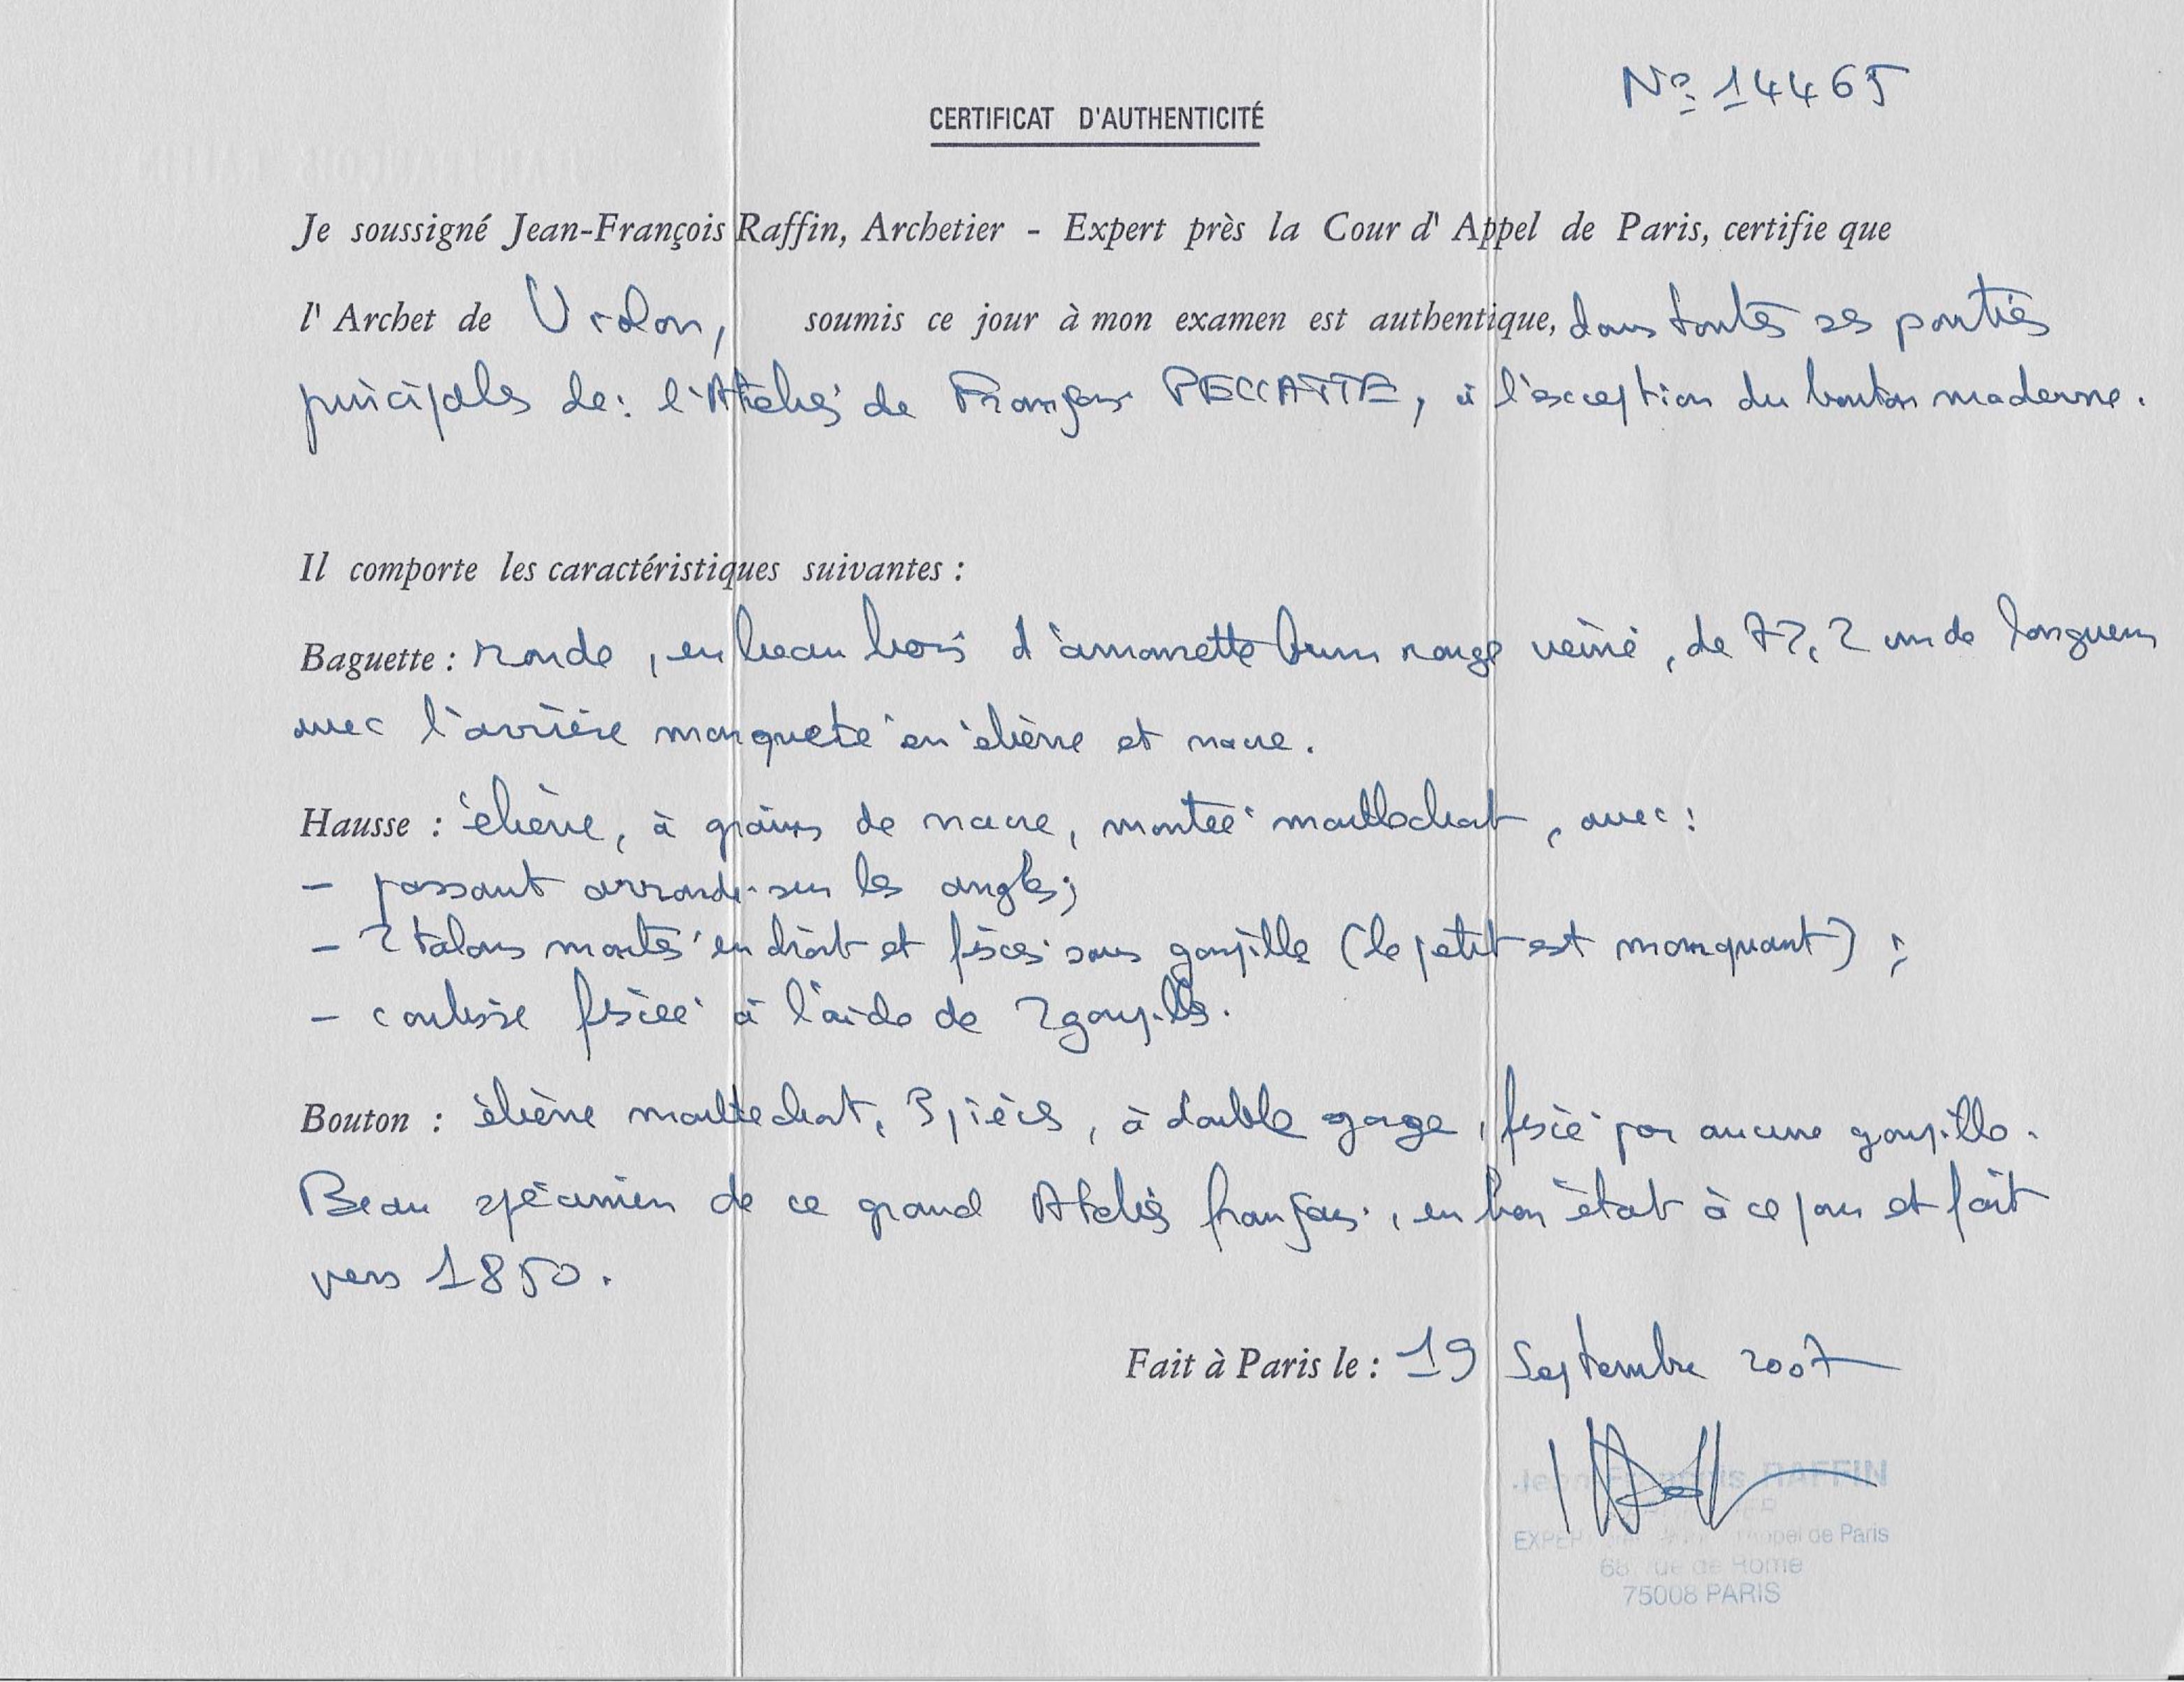 Nº: 14465
CERTIFICAT D'AUTHENTICITÉ
Je soussigné Jean-François Raffin, Archetier - Expert près la Cour d' Appel de Paris, certifie que
l' Archet de Violon, soumis ce jour à mon examen est authentique, dans toutes ses parties
principales de: l'Atelier de François PECCATTE, à l'exception du bouton moderne.
Il comporte les caractéristiques suivantes :
Baguette : ronde, en beau bois d'amourette brun rouge veiné, de 72,2 cm de longueur
avec l'arrière marqueté en ébène et nacre.
Hausse : ébène, à grains de nacre, montée maillechort, avec :
- passant arrondi sur les angles;
- 2 talons montés en droit et fixés sans goupille (le petit est manquant) ;
- coulisse fixée à l'aide de 2 goupilles.
Bouton : ébène maillechort, 3 pièces, à double gorge, fixé par aucune goupille.
Beau spécimen de ce grand Atelier français, en bon état à ce jour et fait
vers 1850.
Fait à Paris le : 19 Septembre 2007
Jean-François RAFFIN
EXPERT Appel de Paris
68 rue de Rome
75008 PARIS